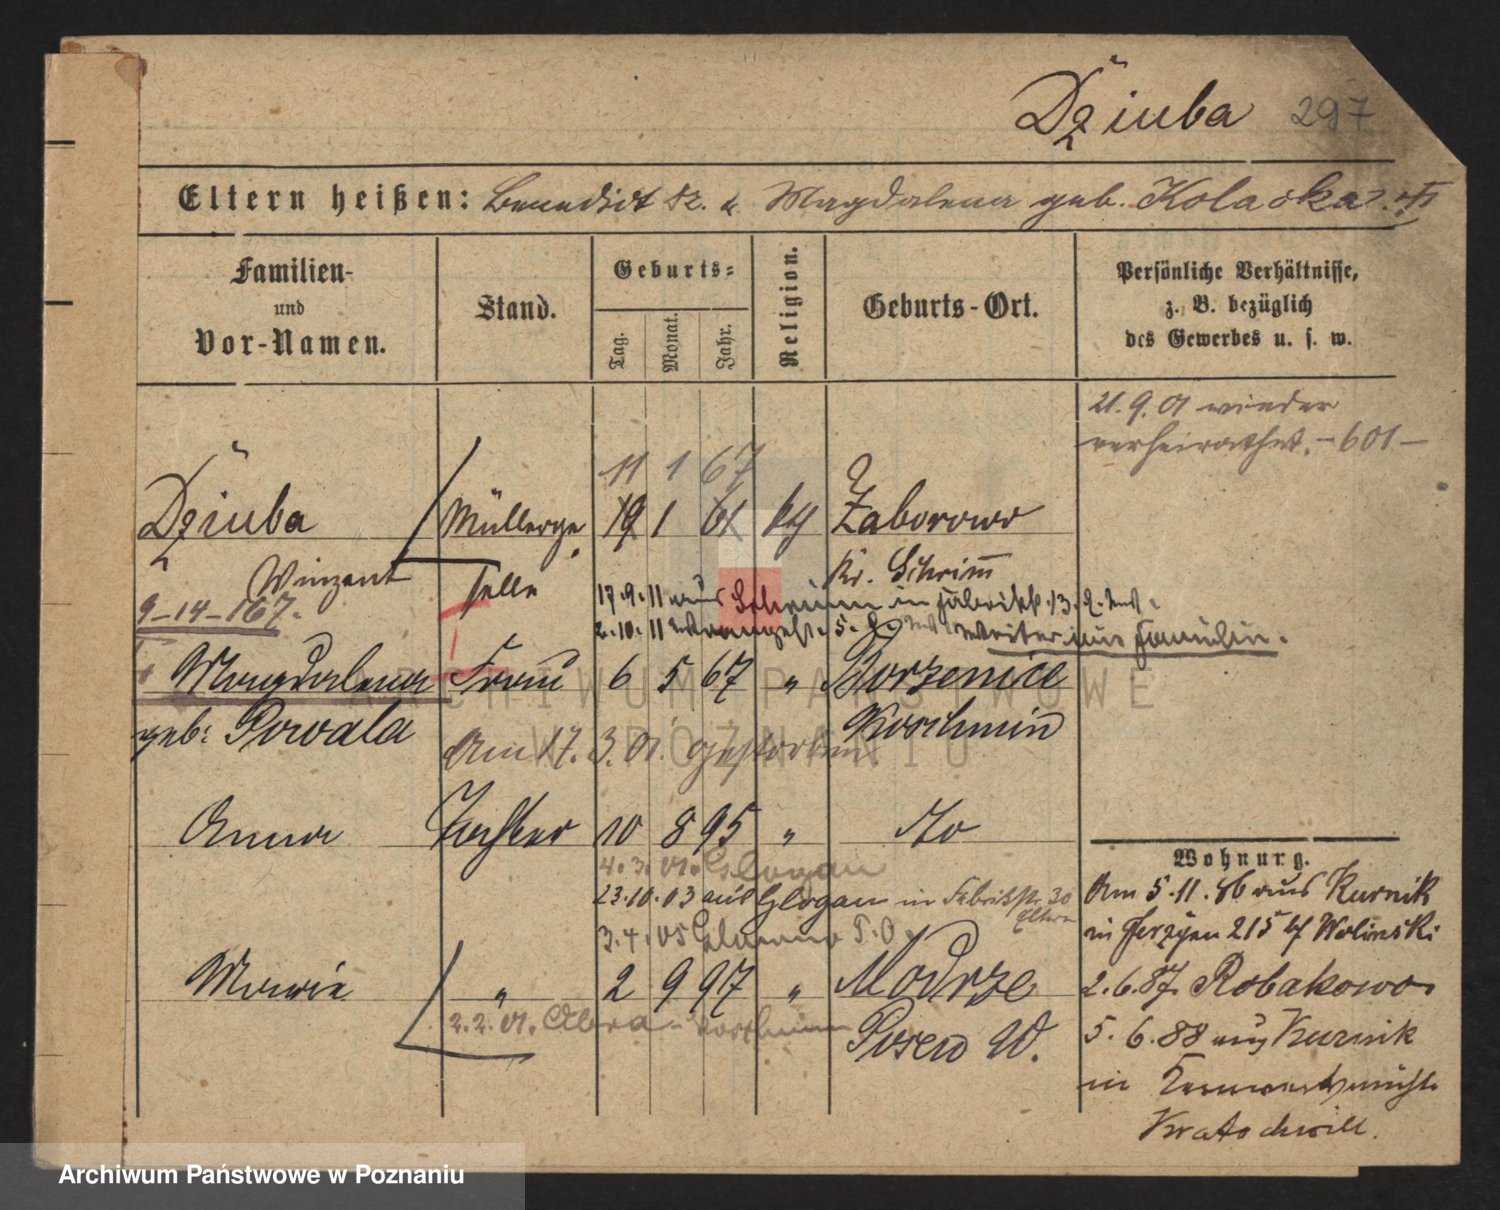 Dziuba 297
Eltern heißen: Benedict Dz. u Magdalena geb. Kolacka
Familien-
und
Vor-Namen.
Stand.
Geburts-
Tag.
Monat.
Jahr.
Religion.
Geburts-Ort.
Persönliche Verhältnisse,
z. B. bezüglich
des Gewerbes u. s. w.
21. 9. 01 wieder
verheirathet. - 601 -
11 1 67
Dziuba Müllerge 19 1 61 kth Zaborowo
Winzent selle Kr. Schrimm
9-14-167.
17.9.11 aus Schrimm in Fabrikstr. 13.
2.10.11
Magdalena Frau 6 5 67 " Borzenice
geb: Powala Koschmin
Am 17. 3. 01. gestorben.
Anna Tochter 10 8 95 " do
4.3.01. Glogau
23.10.03 aus Glogau in Fabrikstr. 30
Eltern
3.4.05
Marie " 2 9 97 " Modrze
2.2.01.
Posen W.
Wohnung.
Am 5.11.86 aus Kurnik
in Jerzycen 215 bei Wolinski
2.6.87. Robakowo
5. 6. 88 aus Kurnik
in
Kratochwill.
ARCHIWUM PAŃSTWOWE
W POZNANIU
Archiwum Państwowe w Poznaniu